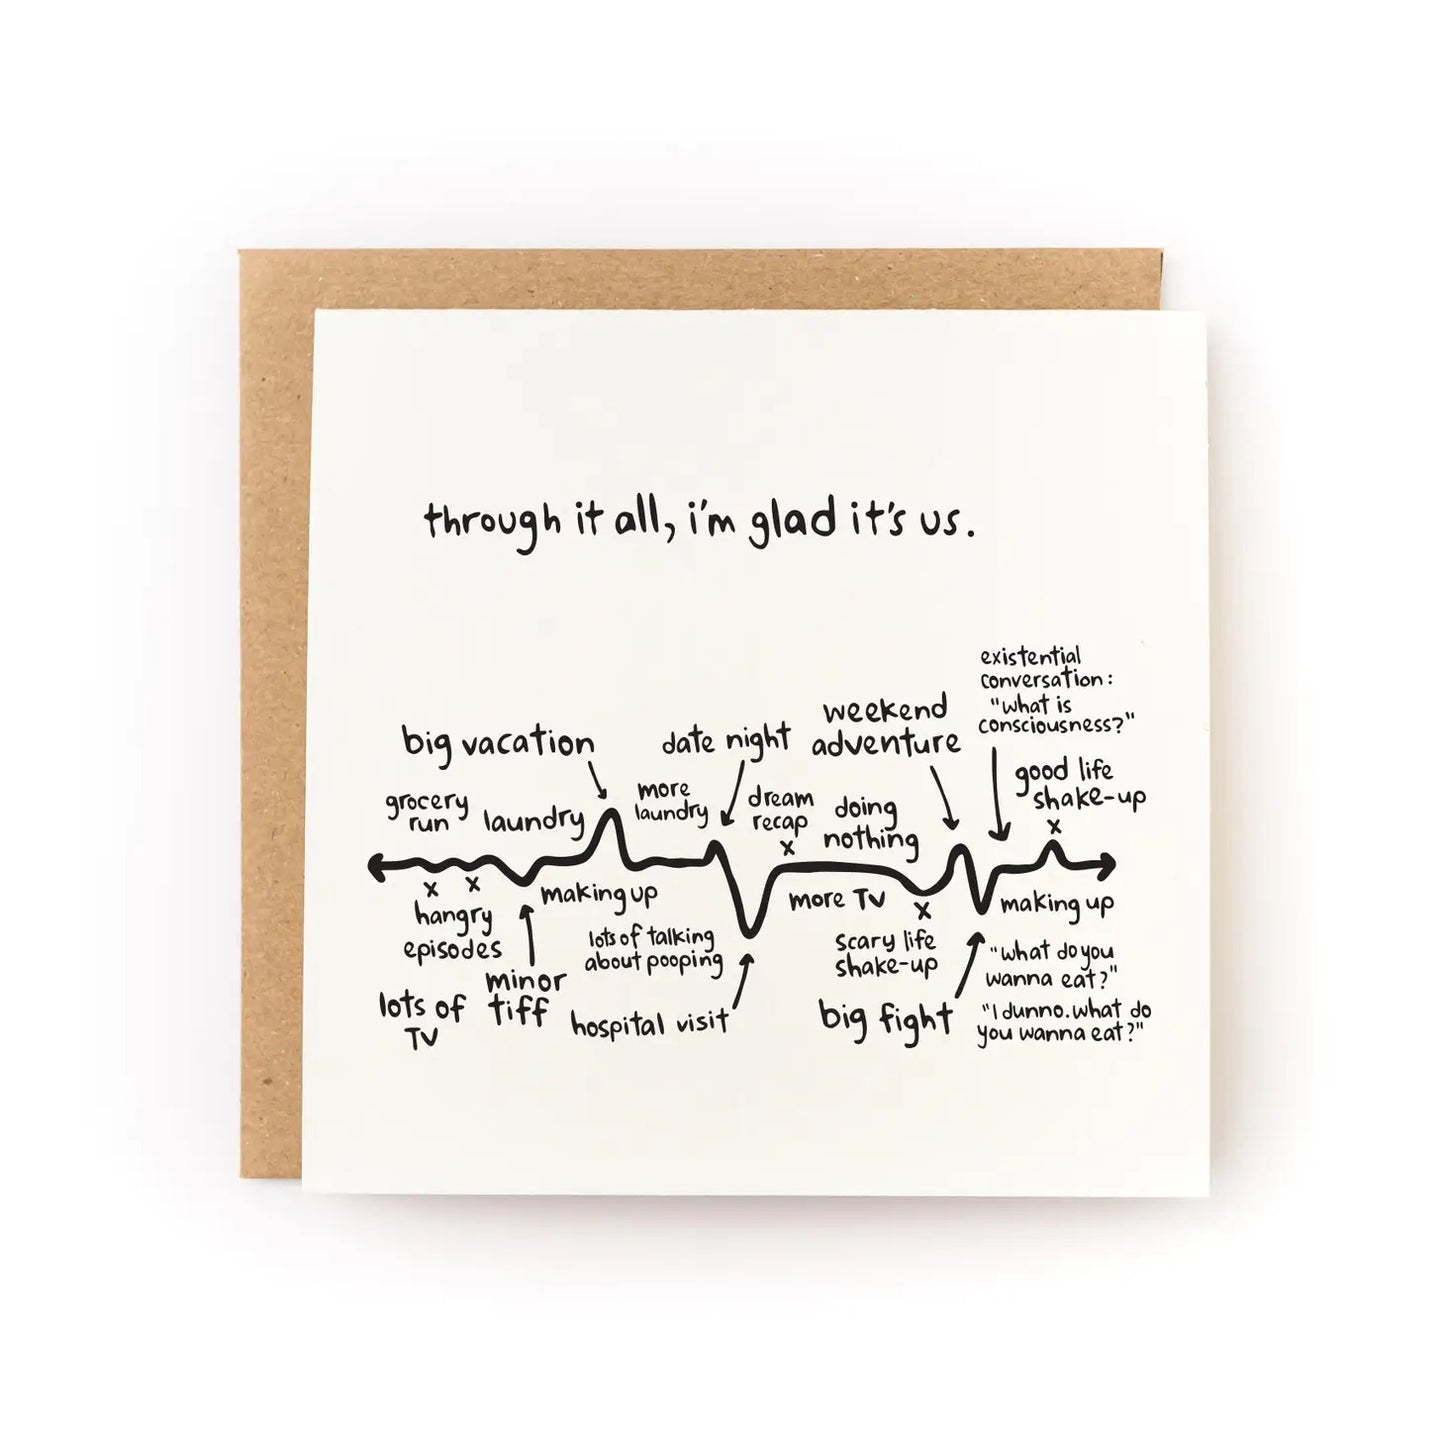 through it all, i'm glad it's us.
existential
conversation:
"what is
consciousness?"
weekend
adventure
big vacation
date night
good life
shake-up
x
grocery
run
laundry
more
laundry
dream
recap
x
doing
nothing
x x
hangry
episodes
making up
more TV
x
making up
lots of talking
about pooping
scary life
shake-up
"what do you
wanna eat?"
minor
tiff
lots of
TV
hospital visit
big fight
"I dunno. what do
you wanna eat?"